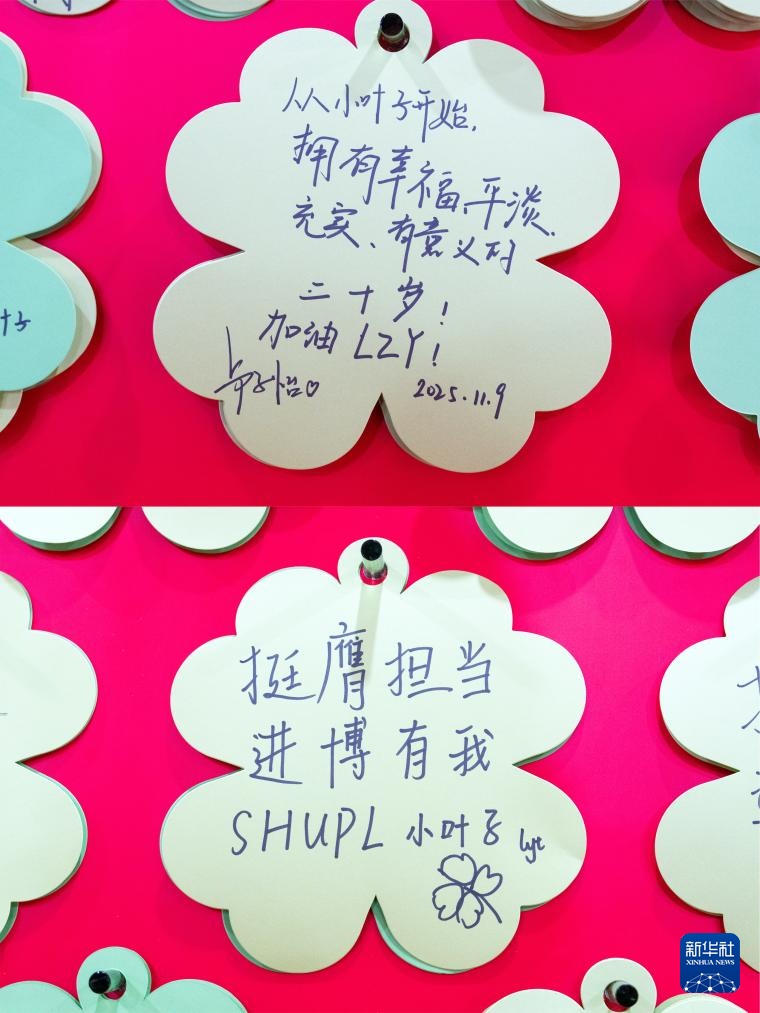 从小叶子开始,
拥有幸福、平淡、
充实、有意义的
二十岁!
加油 LZY!
2025.11.9
挺膺担当
进博有我
SHUPL 小叶子 lyt
新华社
XINHUA NEWS